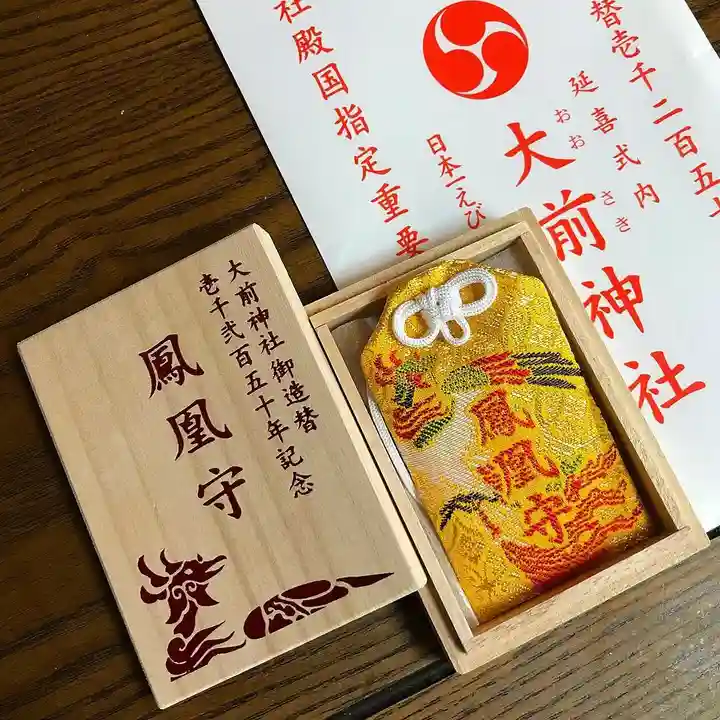 替壱千二百五十
延喜式内
おお さき
大前神社
日本一えび
社殿国指定重要
大前神社御造替
壱千弐百五十年記念
鳳凰守
鳳凰守